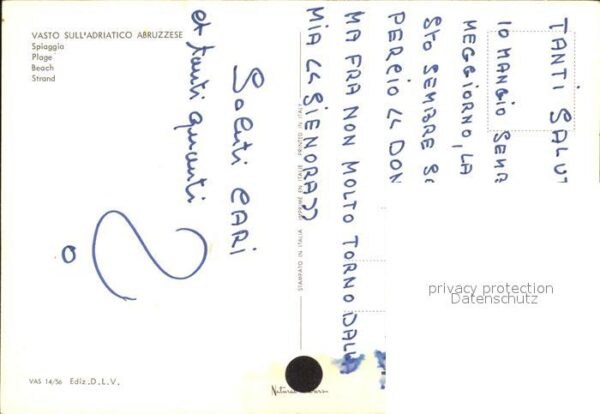 VASTO SULL'ADRIATICO ABRUZZESE
Spiaggia
Plage
Beach
Strand
TANTI SALUT
IO MANGIO SEMP
MEGGIORNO, LA
STO SEMBRE SO
PERCIO << DON
MA FRA NON MOLTO TORNO DALLA
MIA << SIENORA>>
Saluti CARI
et tanti quanti
STAMPATO IN ITALIA IMPRIMÉ EN ITALIE PRINTED IN ITALY
privacy protection
Datenschutz
VAS 14/56 Ediz.D.L.V.